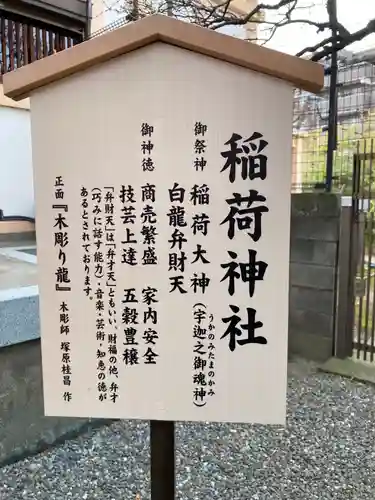 稲荷神社
御祭神　稲荷大神（宇迦之御魂神）
うかのみたまのかみ
白龍弁財天
御神徳　商売繁盛　家内安全
技芸上達　五穀豊穣
「弁財天」は「弁才天」ともいい、財福の他、弁才
（巧みに話す能力）・音楽・芸術・知恵の徳が
あるとされております。
正面　『木彫り龍』　木彫師　塚原桂昌　作